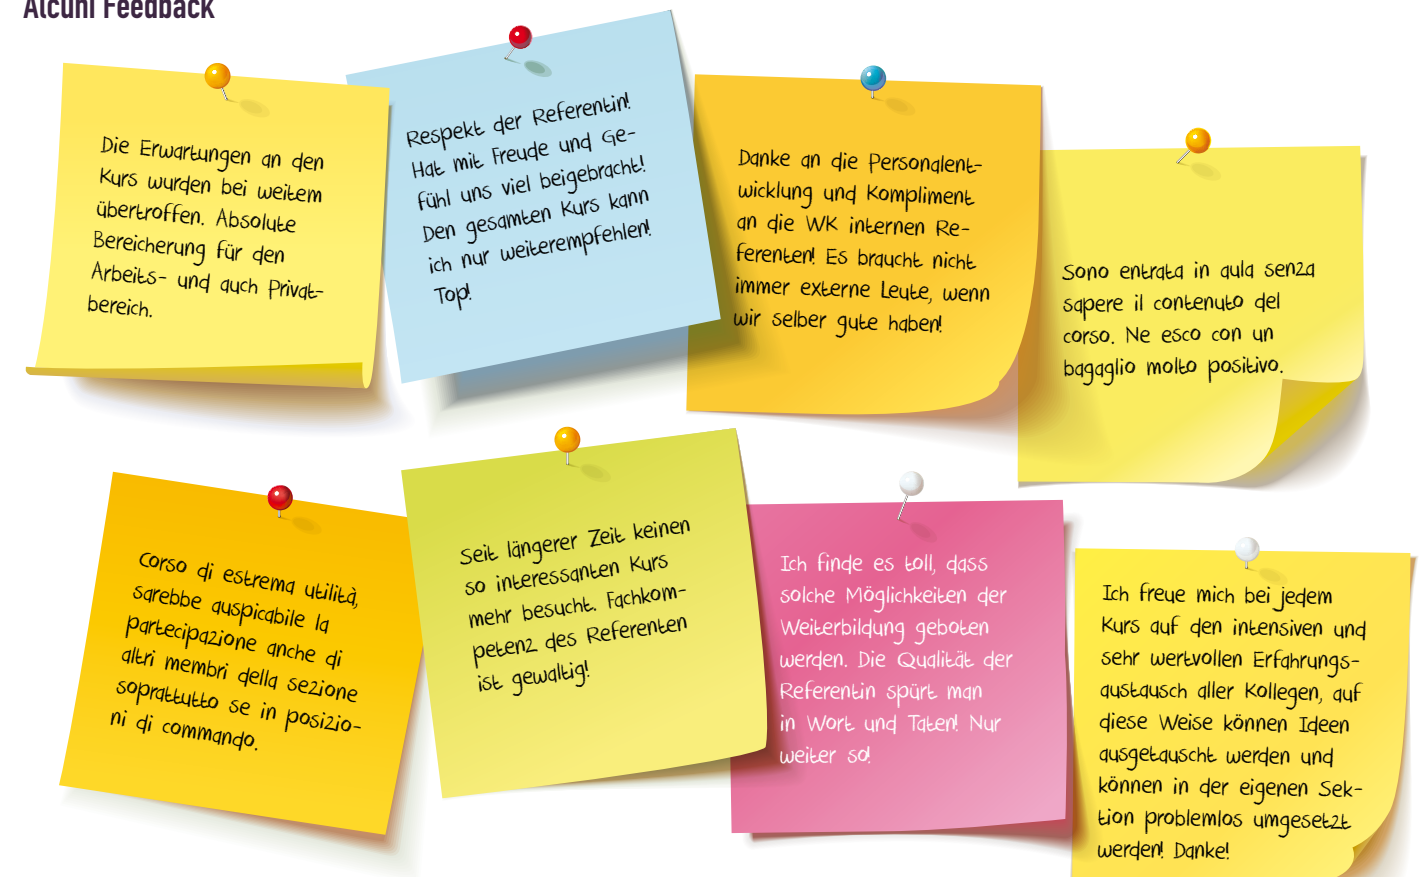 Alcuni Feedback
Die Erwartungen an den
Kurs wurden bei weitem
übertroffen. Absolute
Bereicherung für den
Arbeits- und auch Privat-
bereich.
Respekt der Referentin!
Hat mit Freude und Ge-
fühl uns viel beigebracht!
Den gesamten Kurs kann
ich nur weiterempfehlen!
Top!
Danke an die Personalent-
wicklung und Kompliment
an die WK internen Re-
ferenten! Es braucht nicht
immer externe Leute, wenn
wir selber gute haben!
Sono entrata in aula senza
sapere il contenuto del
corso. Ne esco con un
bagaglio molto positivo.
Corso di estrema utilità,
sarebbe auspicabile la
partecipazione anche di
altri membri della sezione
soprattutto se in posizio-
ni di commando.
Seit längerer Zeit keinen
so interessanten Kurs
mehr besucht. Fachkom-
petenz des Referenten
ist gewaltig!
Ich finde es toll, dass
solche Möglichkeiten der
Weiterbildung geboten
werden. Die Qualität der
Referentin spürt man
in Wort und Taten! Nur
weiter so!
Ich freue mich bei jedem
Kurs auf den intensiven und
sehr wertvollen Erfahrungs-
austausch aller Kollegen, auf
diese Weise können Ideen
ausgetauscht werden und
können in der eigenen Sek-
tion problemlos umgesetzt
werden! Danke!